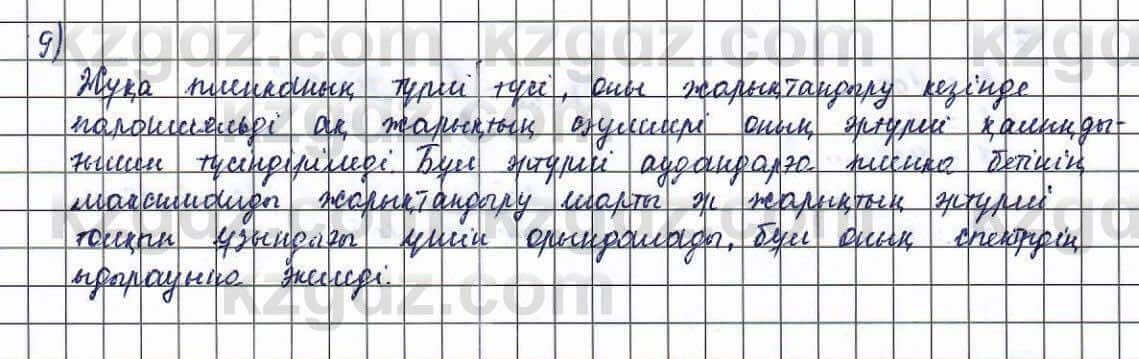 9)
Жұқа пленканың түрлі түсі, оны жарықтандыру кезінде
параллельді ақ жарықтың сәулелері оның әртүрлі қалыңды-
ғымен түсіндіріледі. Бұл әртүрлі аудандарға пленка бетінің
максималды жарықтандыру шарты ж жарықтың әртүрлі
толқын ұзындығы үшін орындалады, бұл оның спектрдің
ыдырауына әкеледі.